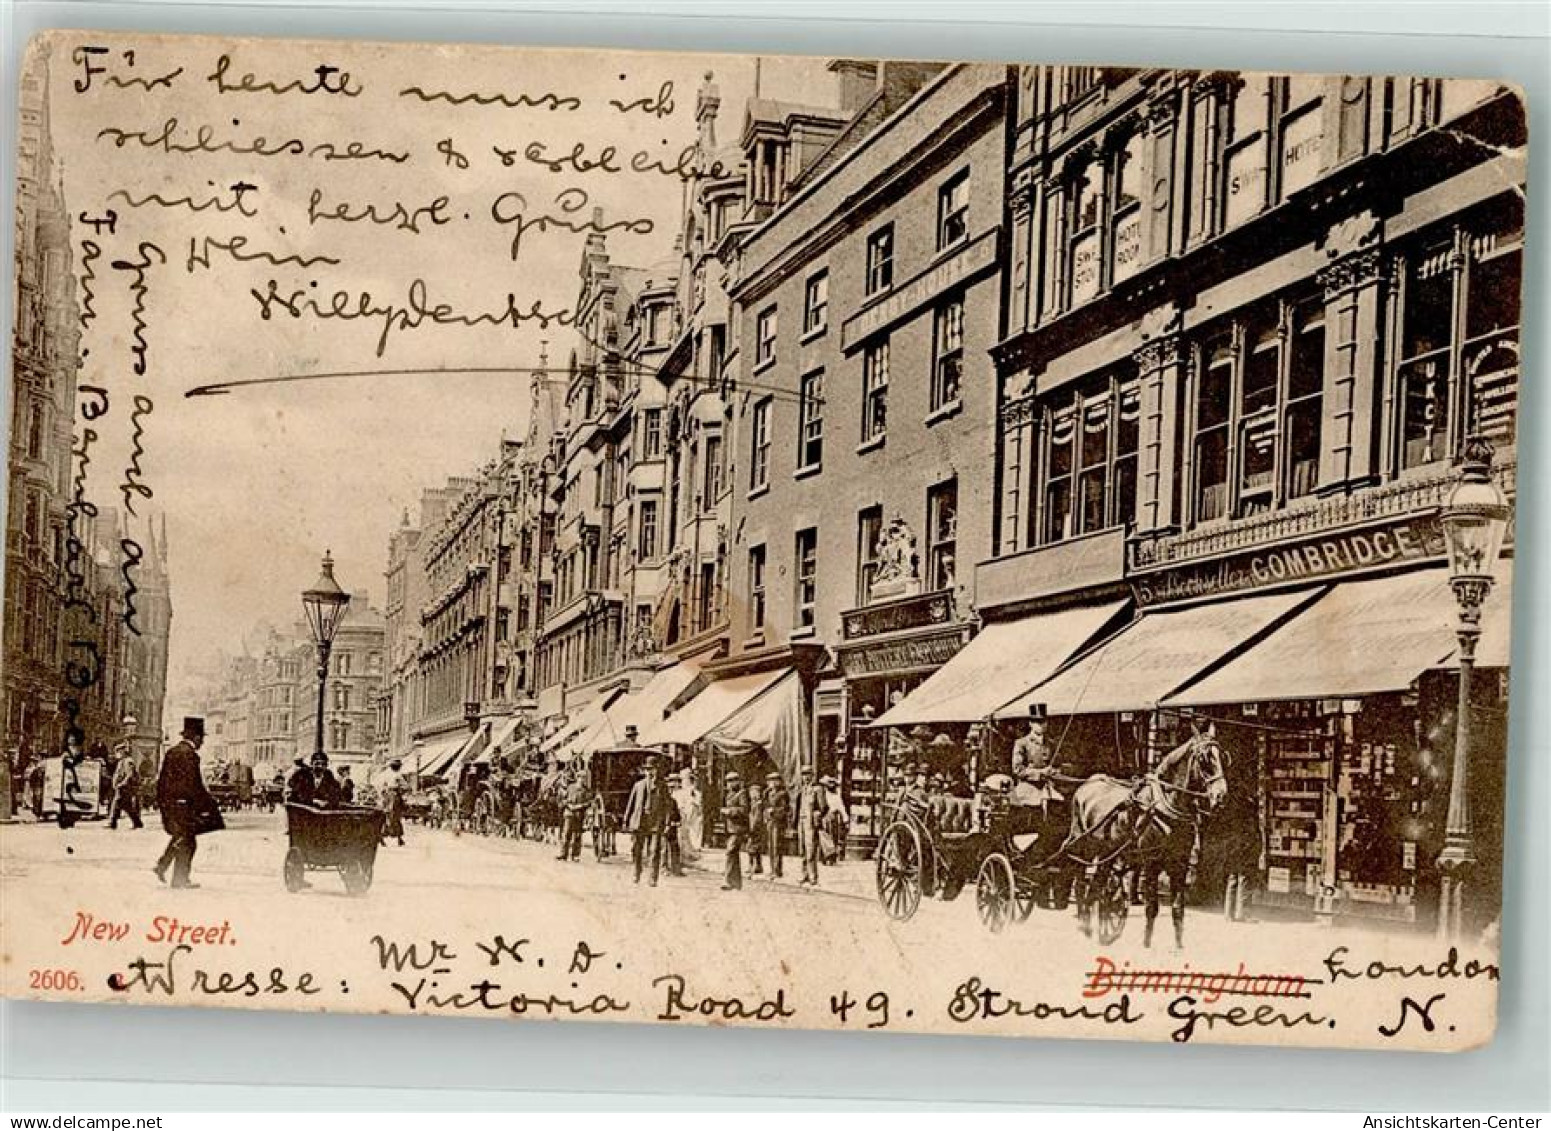 Für heute muss ich
schliessen & verbleibe
mit herzl. Gruss
Dein
Willy Deutsch
Gruss auch an
Fam. Bernhard
SWISS
HOTEL
HOTEL
GOMBRIDGE
New Street.
2606.
Adresse: Mr W. D.
Birmingham London
Victoria Road 49. Stroud Green. N.
Ansichtskarten-Center